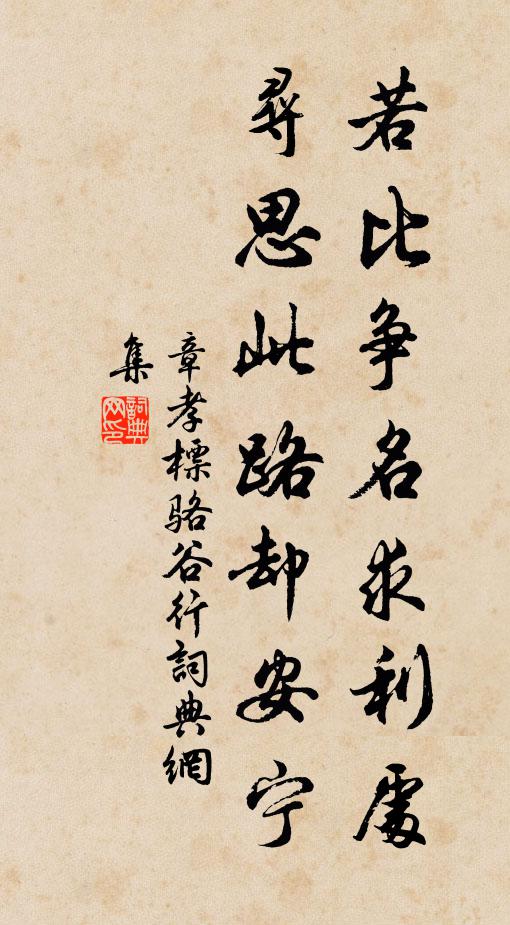 若比争名求利處
尋思此路却安宁
章孝標駱谷行詞典網
集
詞典網印